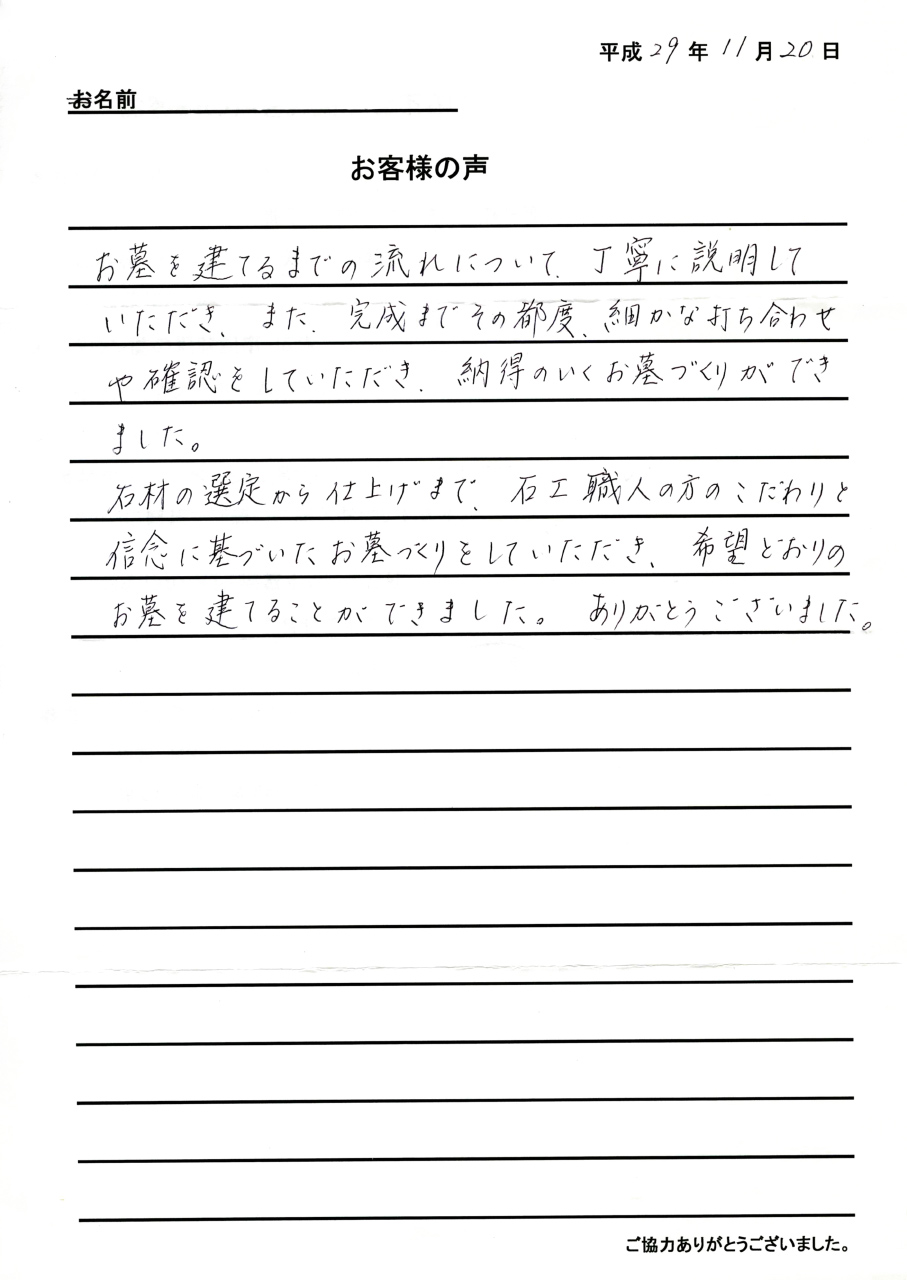 平成29年11月20日
お名前
お客様の声
お墓を建てるまでの流れについて、丁寧に説明して
いただき、また、完成までその都度、細かな打ち合わせ
や確認をしていただき、納得のいくお墓づくりができ
ました。
石材の選定から仕上げまで、石工職人の方のこだわりと
信念に基づいたお墓づくりをしていただき、希望どおりの
お墓を建てることができました。ありがとうございました。
ご協力ありがとうございました。